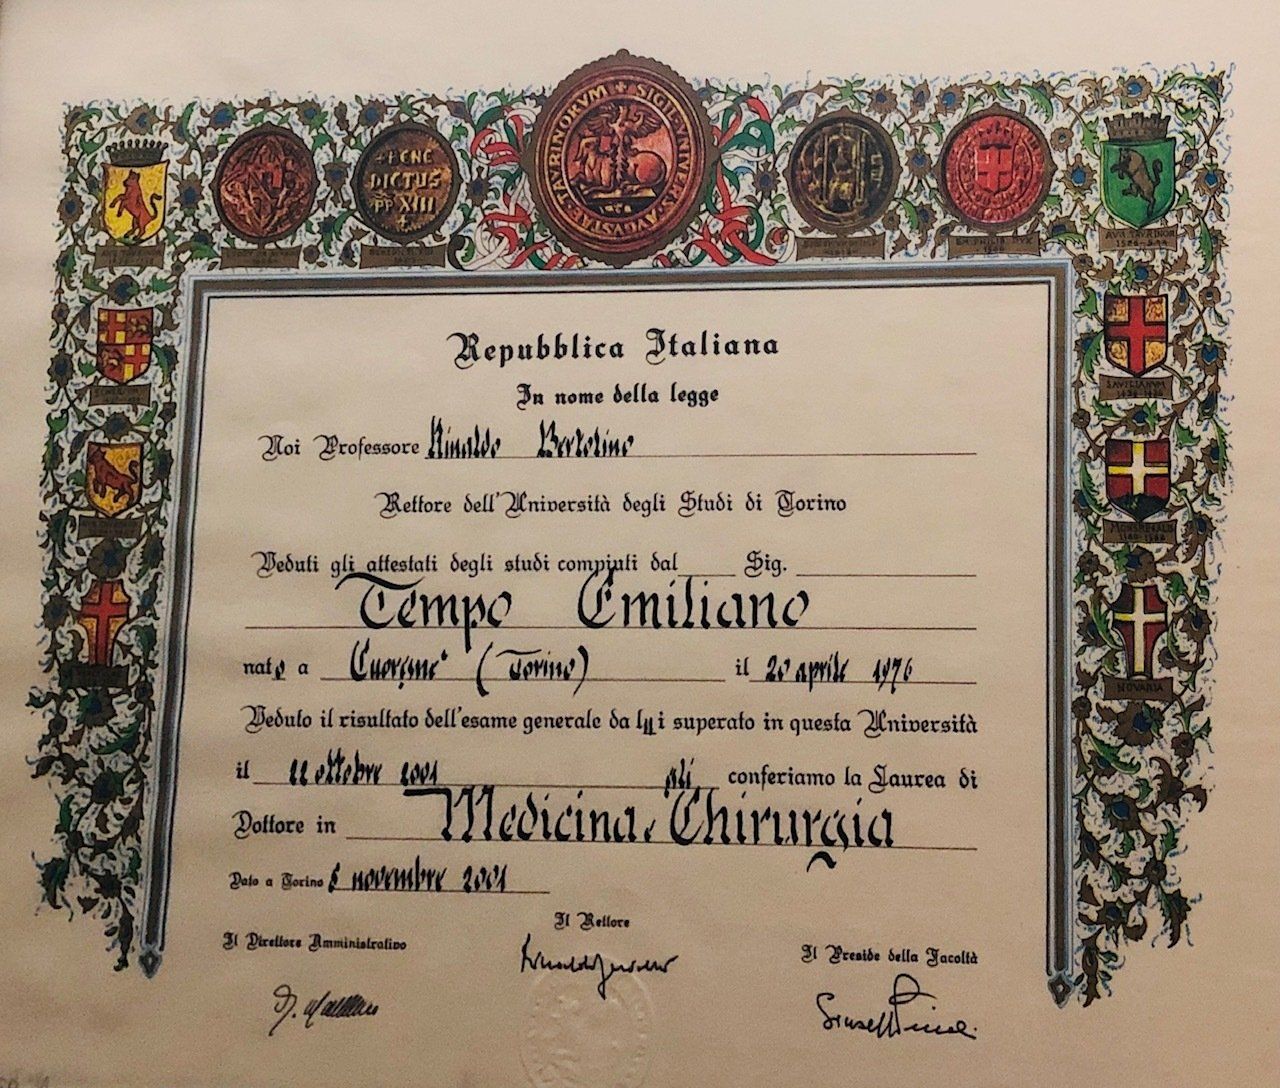 SIGILL VNIVERS AVGVSTAE TAVRINORVM
1404
+ BENE
DICTUS
PP XIII
AVG TAVRINOR
SAVILIANVM
NOVARIA
Repubblica Italiana
In nome della legge
Noi Professore Rinaldo Bertolino
Rettore dell'Università degli Studi di Torino
Veduti gli attestati degli studi compiuti dal Sig.
Tempo Emiliano
nato a Cuorgne' (Torino) il 20 aprile 1976
Veduto il risultato dell'esame generale da lui superato in questa Università
il ottobre 2001 gli conferiamo la Laurea di
Dottore in Medicina e Chirurgia
Dato a Torino novembre 2001
Il Rettore
Il Direttore Amministrativo
Il Preside della Facoltà